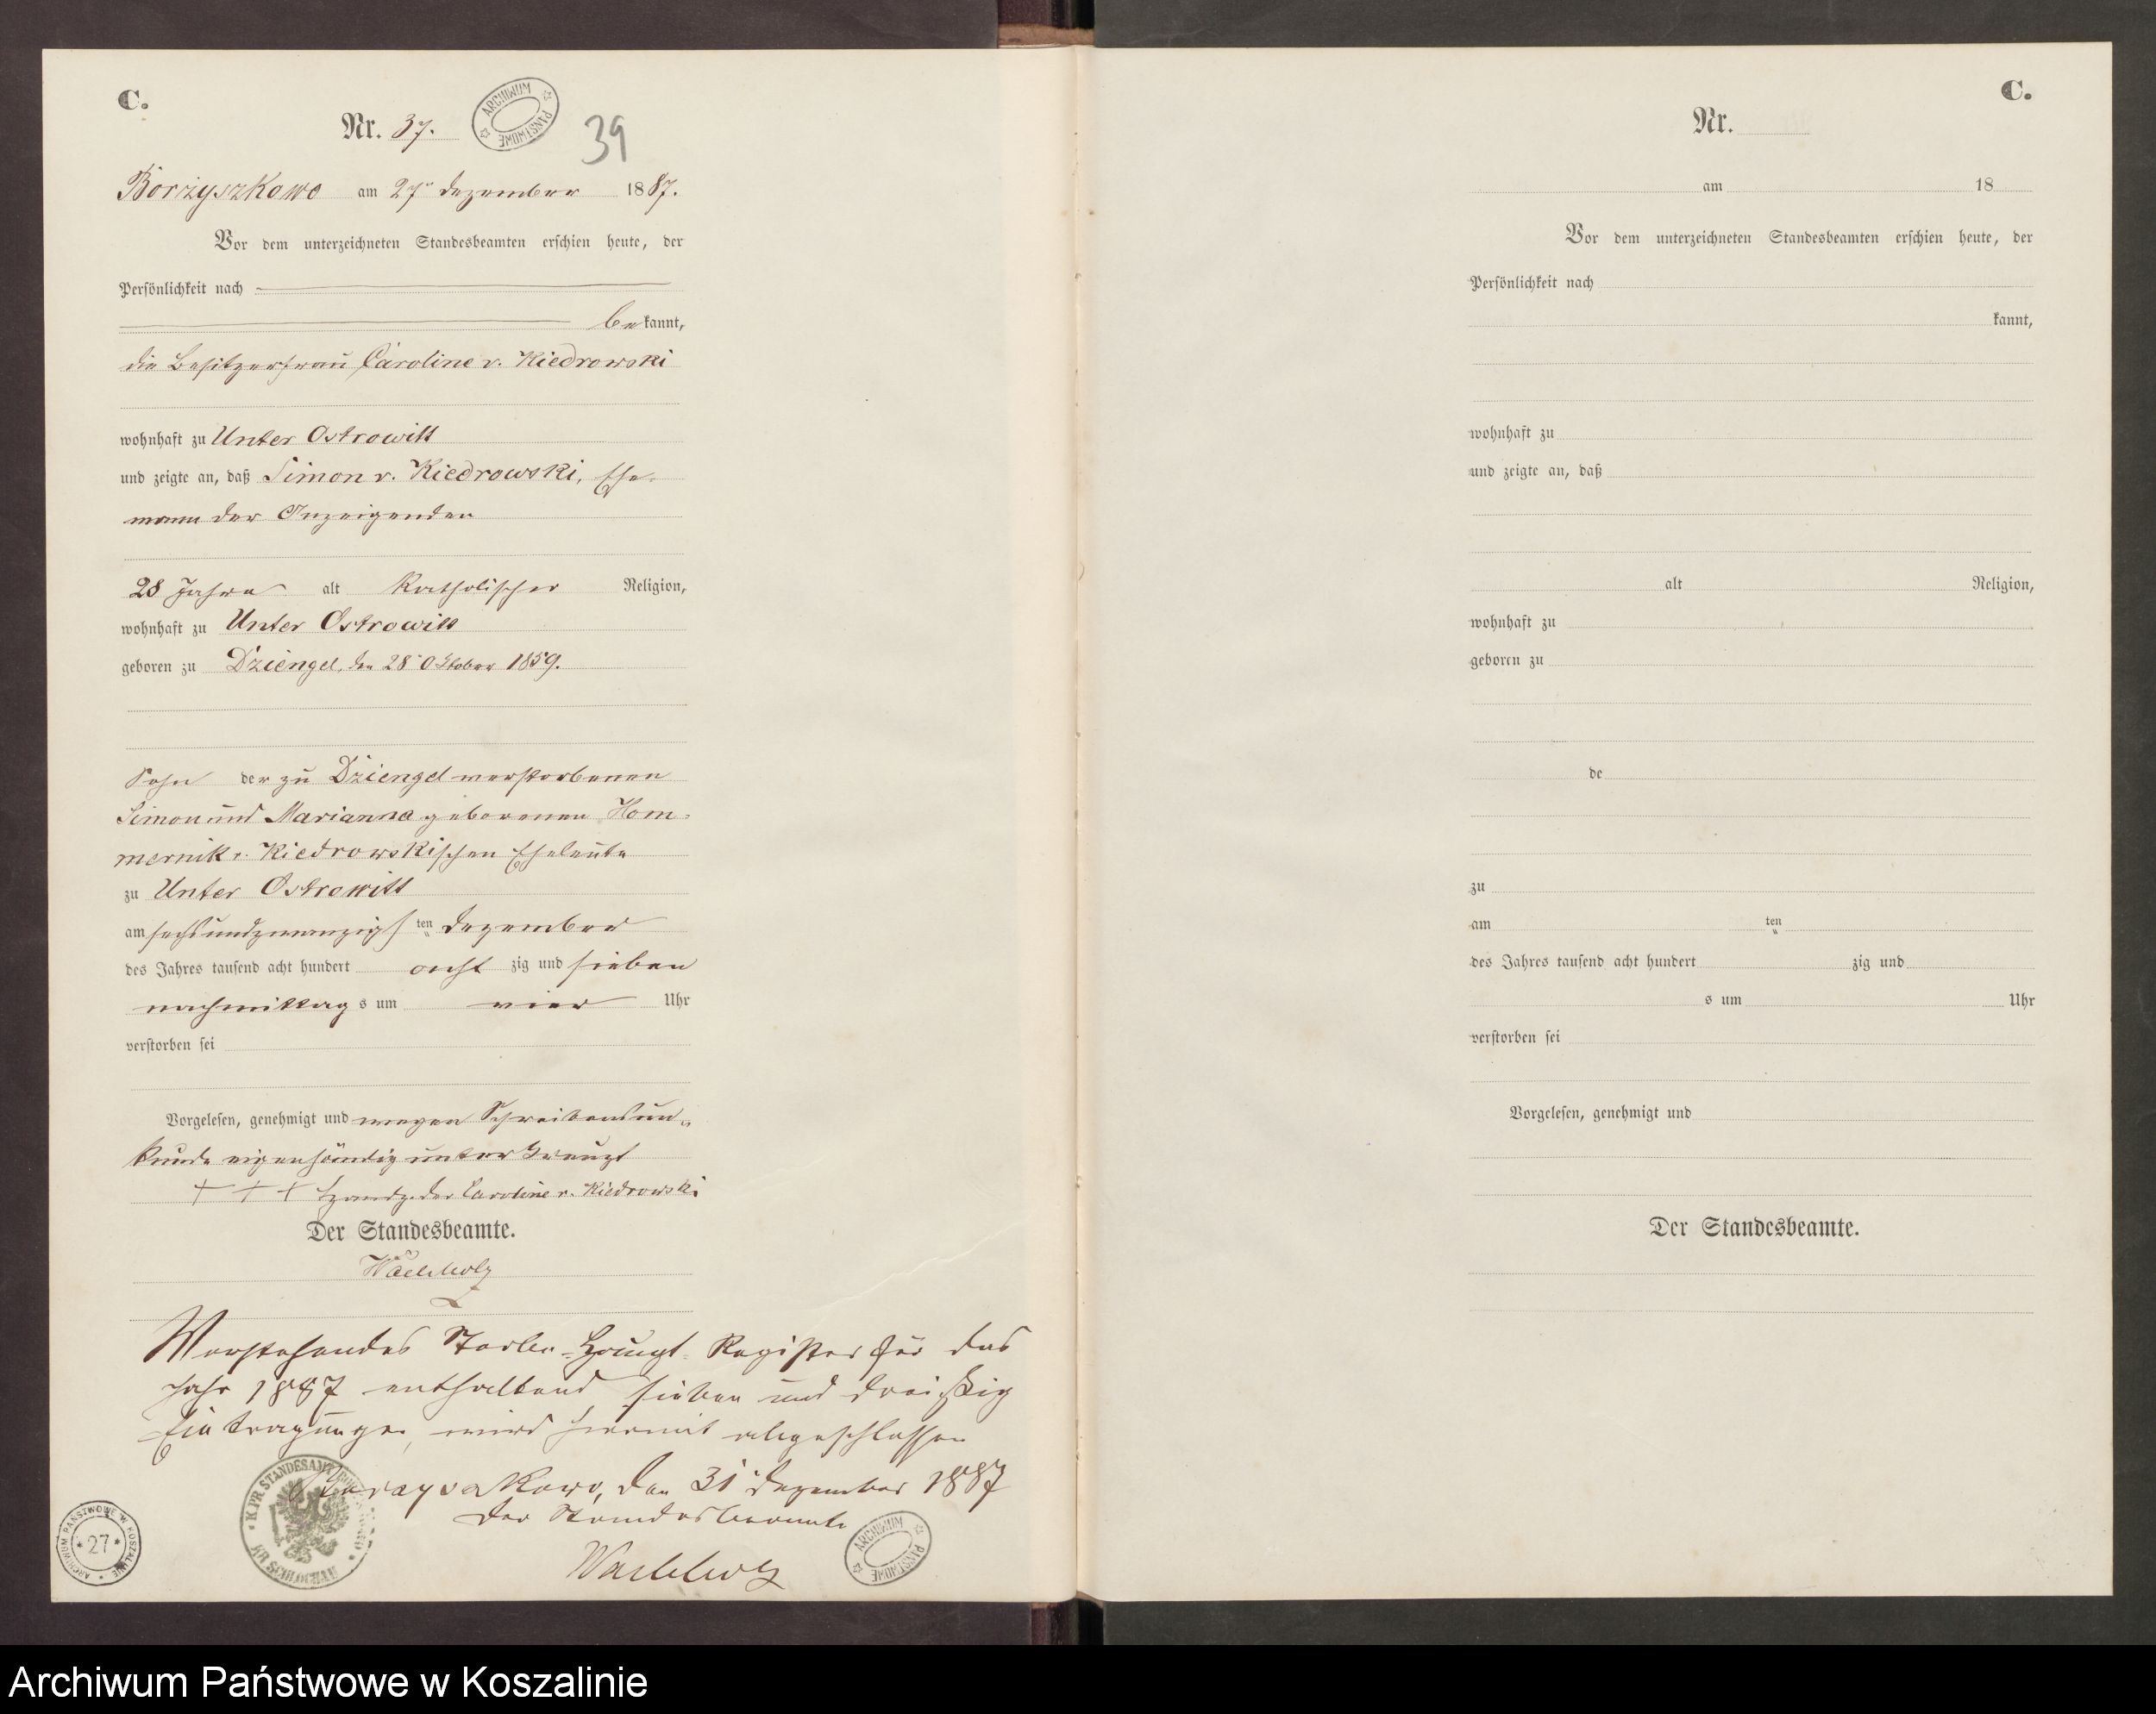 C.
Nr. 37.
ARCHIWUM PAŃSTWOWE
39
Borzyszkowo am 27ten Dezember 1887.
Vor dem unterzeichneten Standesbeamten erschien heute, der
Persönlichkeit nach
bekannt,
die Besitzerfrau Caroline v. Kiedrowski
wohnhaft zu Unter Ostrowitt
und zeigte an, daß Simon v. Kiedrowski, Ehe-
mann der Anzeigenden
28 Jahre alt Katholischer Religion,
wohnhaft zu Unter Ostrowitt
geboren zu Dziengel, den 28ten Oktober 1859.
Sohn der zu Dziengel verstorbenen
Simon und Marianna geborenen Hom-
mernik v. Kiedrowskischen Eheleute
zu Unter Ostrowitt
am sechsundzwanzigsten Dezember
des Jahres tausend acht hundert achtzig und sieben
nachmittags um vier Uhr
verstorben sei
Vorgelesen, genehmigt und wegen Schreibensun-
kunde eigenhändig unterkreuzt
+ + + Handz. der Caroline v. Kiedrowski
Der Standesbeamte.
Wachholz
Vorstehendes Sterbe-Haupt-Register für das
Jahr 1887 enthaltend sieben und dreißig
Eintragungen, wird hiermit abgeschlossen
Borzyszkowo, den 31ten Dezember 1887
Der Standesbeamte
Wachholz
K. PR. STANDESAMT
KR SCHLOCHAU
ARCHIWUM PAŃSTWOWE W KOSZALINIE
* 27 *
ARCHIWUM PAŃSTWOWE
C.
Nr.
am 18
Vor dem unterzeichneten Standesbeamten erschien heute, der
Persönlichkeit nach
kannt,
wohnhaft zu
und zeigte an, daß
alt Religion,
wohnhaft zu
geboren zu
de
zu
am ten
des Jahres tausend acht hundert zig und
s um Uhr
verstorben sei
Vorgelesen, genehmigt und
Der Standesbeamte.
Archiwum Państwowe w Koszalinie